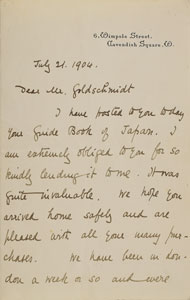 6, Wimpole Street,
Cavendish Square, W.
July 21. 1904.
Dear Mr. Goldschmidt
I have posted to you today
your Guide Book of Japan. I
am extremely obliged to you for so
kindly lending it to me. It was
quite invaluable. We hope you
arrived home safely and are
pleased with all your many pur-
chases. We have been in Lon-
don a week or so and were